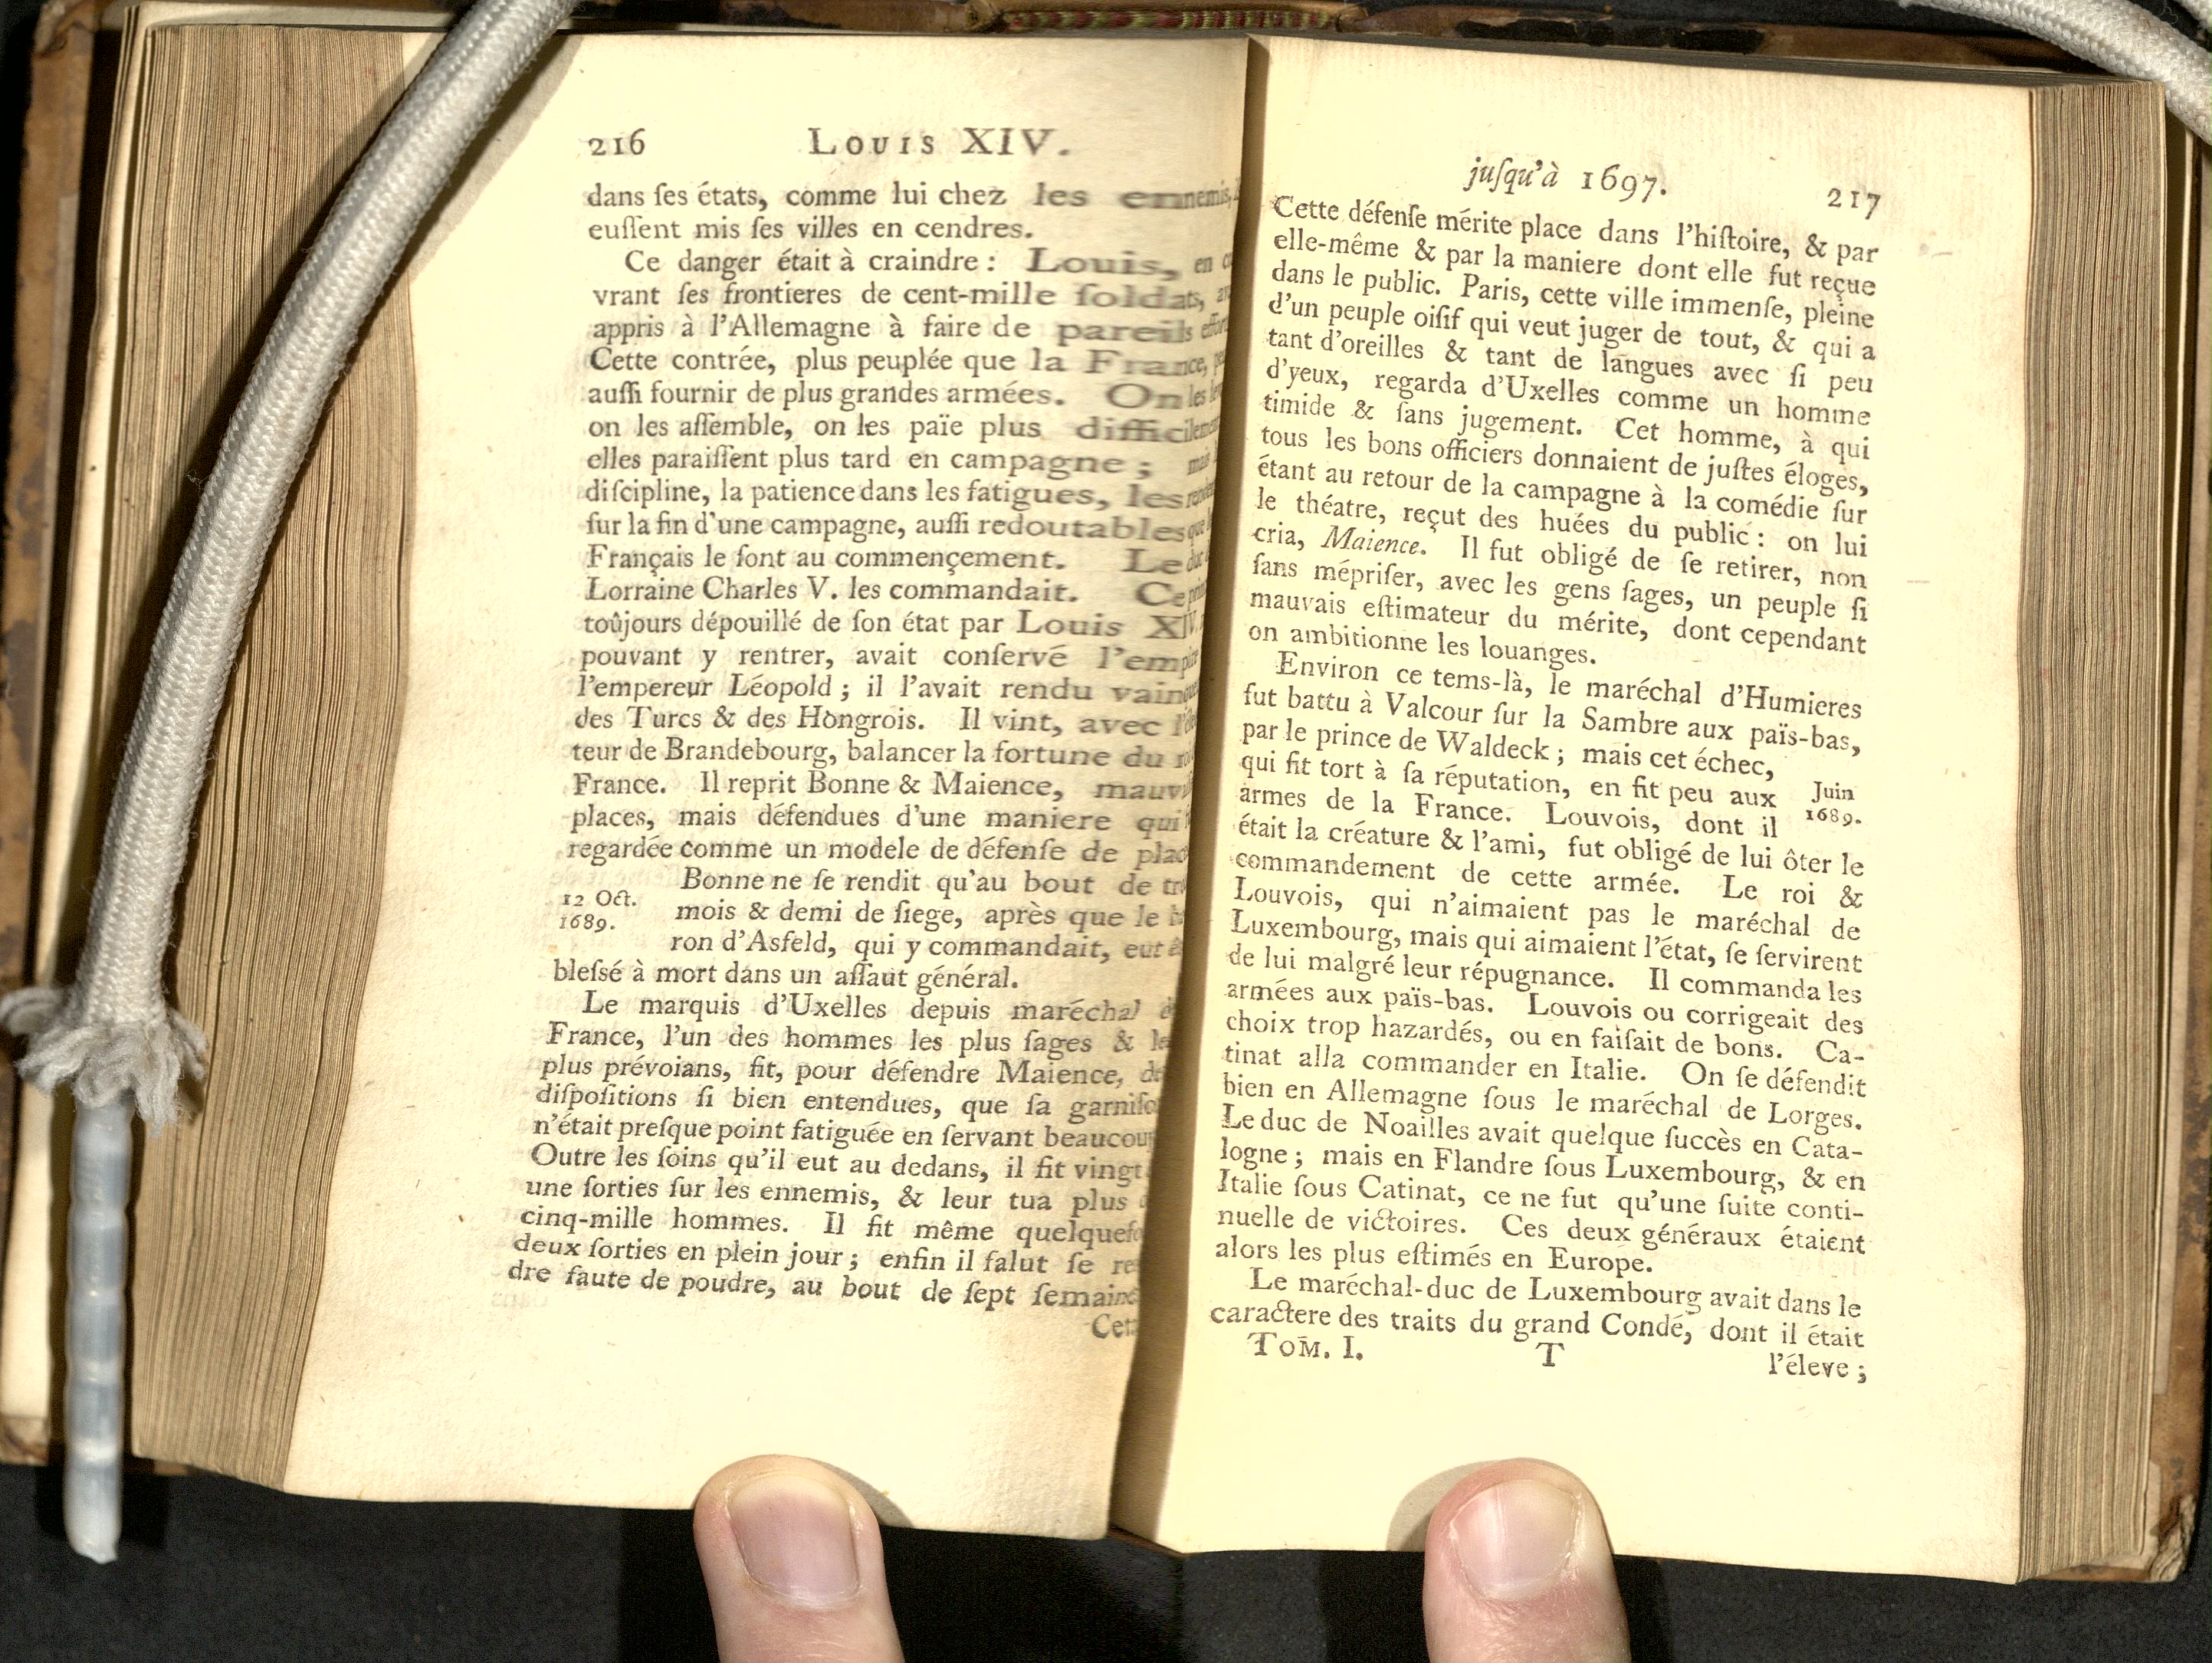 216 LOUIS XIV.
dans ſes états, comme lui chez les ennemis,
euſſent mis ſes villes en cendres.
Ce danger était à craindre : Louis, en
vrant ſes frontieres de cent-mille ſoldats,
appris à l'Allemagne à faire de pareils
Cette contrée, plus peuplée que la France,
auſſi fournir de plus grandes armées. On les
on les aſſemble, on les païe plus
elles paraiſſent plus tard en campagne ; mais
diſcipline, la patience dans les fatigues, les
ſur la fin d'une campagne, auſſi redoutables que
Français le ſont au commençement. Le duc
Lorraine Charles V. les commandait. Ce
toûjours dépouillé de ſon état par Louis XIV.
pouvant y rentrer, avait conſervé
l'empereur Léopold ; il l'avait rendu
des Turcs & des Hongrois. Il vint, avec
teur de Brandebourg, balancer la fortune du
France. Il reprit Bonne & Maience,
places, mais défendues d'une maniere qui
regardée comme un modele de défenſe de
Bonne ne ſe rendit qu'au bout de
12 Oct.
1689.
mois & demi de ſiege, après que le
ron d'Asfeld, qui y commandait, eut
bleſsé à mort dans un aſſaut général.
Le marquis d'Uxelles depuis maréchal
France, l'un des hommes les plus ſages &
plus prévoians, fit, pour défendre Maience,
diſpoſitions ſi bien entendues, que ſa
n'était preſque point fatiguée en ſervant
Outre les ſoins qu'il eut au dedans, il fit vingt
une ſorties ſur les ennemis, & leur tua plus
cinq-mille hommes. Il fit même
deux ſorties en plein jour ; enfin il falut ſe
dre faute de poudre, au bout de ſept
juſqu'à 1697. 217
Cette défenſe mérite place dans l'hiſtoire, & par
elle-même & par la maniere dont elle fut reçue
dans le public. Paris, cette ville immenſe, pleine
d'un peuple oiſif qui veut juger de tout, & qui a
tant d'oreilles & tant de langues avec ſi peu
d'yeux, regarda d'Uxelles comme un homme
timide & ſans jugement. Cet homme, à qui
tous les bons officiers donnaient de juſtes éloges,
étant au retour de la campagne à la comédie ſur
le théatre, reçut des huées du public : on lui
cria, Maience. Il fut obligé de ſe retirer, non
ſans mépriſer, avec les gens ſages, un peuple ſi
mauvais eſtimateur du mérite, dont cependant
on ambitionne les louanges.
Environ ce tems-là, le maréchal d'Humieres
fut battu à Valcour ſur la Sambre aux païs-bas,
par le prince de Waldeck ; mais cet échec,
qui fit tort à ſa réputation, en fit peu aux
Juin
1689.
armes de la France. Louvois, dont il
était la créature & l'ami, fut obligé de lui ôter le
commandement de cette armée. Le roi &
Louvois, qui n'aimaient pas le maréchal de
Luxembourg, mais qui aimaient l'état, ſe ſervirent
de lui malgré leur répugnance. Il commanda les
armées aux païs-bas. Louvois ou corrigeait des
choix trop hazardés, ou en faiſait de bons. Ca-
tinat alla commander en Italie. On ſe défendit
bien en Allemagne ſous le maréchal de Lorges.
Le duc de Noailles avait quelque ſuccès en Cata-
logne ; mais en Flandre ſous Luxembourg, & en
Italie ſous Catinat, ce ne fut qu'une ſuite conti-
nuelle de victoires. Ces deux généraux étaient
alors les plus eſtimés en Europe.
Le maréchal-duc de Luxembourg avait dans le
caractere des traits du grand Condé, dont il était
TOM. I. T l'éleve ;